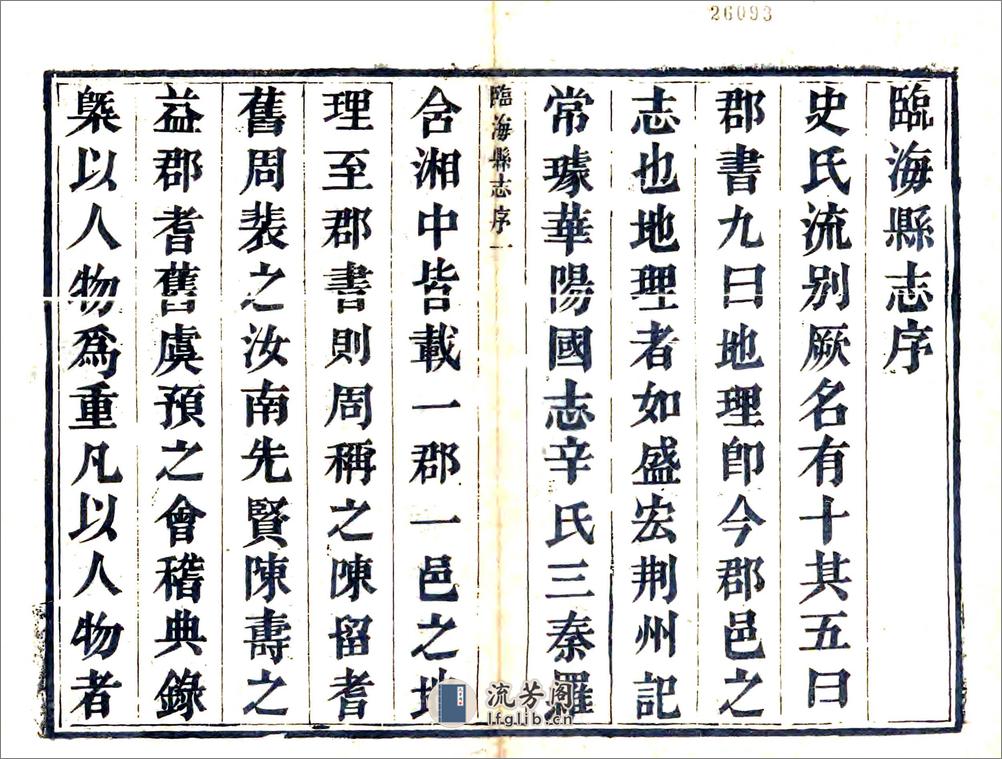 26093
臨海縣志序
史氏流别厥名有十其五曰
郡書九曰地理卽今郡邑之
志也地理者如盛宏荆州記
常璩華陽國志辛氏三秦羅
臨海縣志序一
含湘中皆載一郡一邑之地
理至郡書則周稱之陳留耆
舊周裴之汝南先賢陳壽之
益郡耆舊虞預之會稽典錄
槩以人物爲重凡以人物者
流芳阁
lfglib.cn